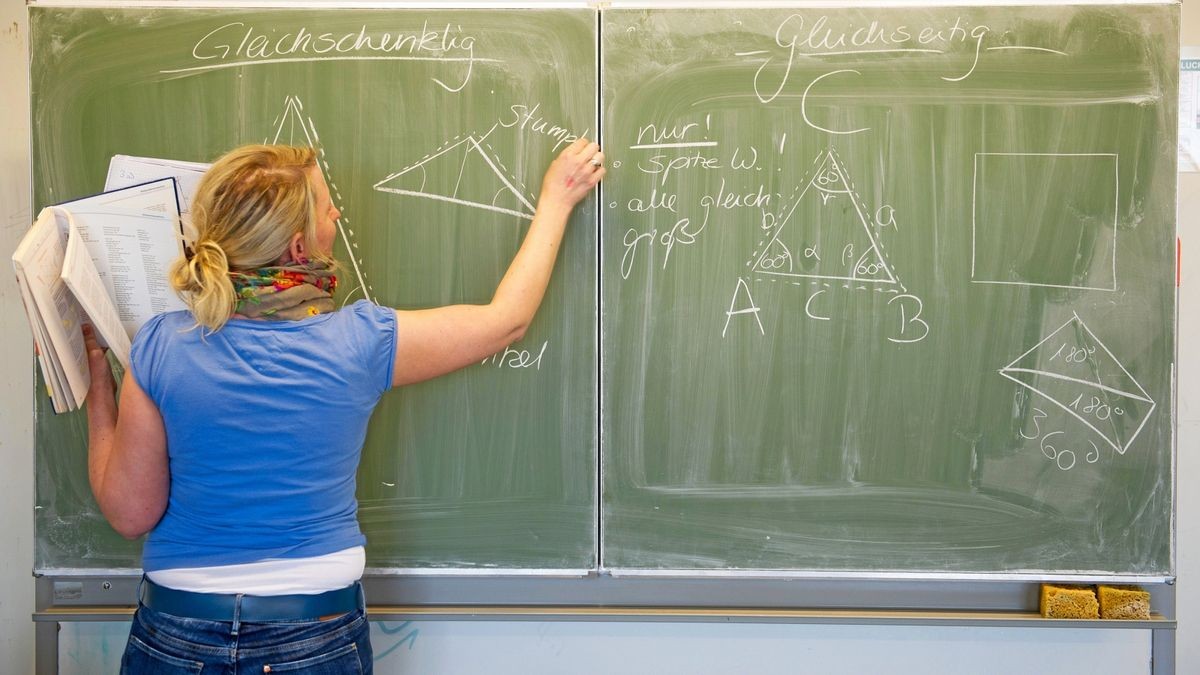 Gleichschenklig
Stump
Gleichseitig
C
nur!
spitze W. !
alle gleich
groß
60°
γ
b
a
60°
α
β
60°
A
C
B
180°
180°
360°